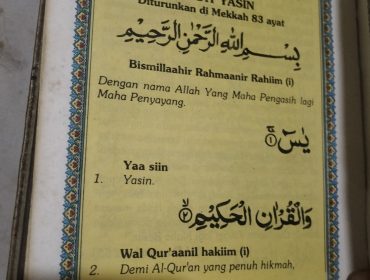 YASIN
Diturunkan di Mekkah 83 ayat
بِسْمِ اللهِ الرَّحْمٰنِ الرَّحِيْمِ
Bismillaahir Rahmaanir Rahiim (i)
Dengan nama Allah Yang Maha Pengasih lagi
Maha Penyayang.
يٰسۤ ۚ ۝١
Yaa siin
1. Yasin.
وَالْقُرْاٰنِ الْحَكِيْمِۙ ۝٢
Wal Qur'aanil hakiim (i)
2. Demi Al-Qur'an yang penuh hikmah,